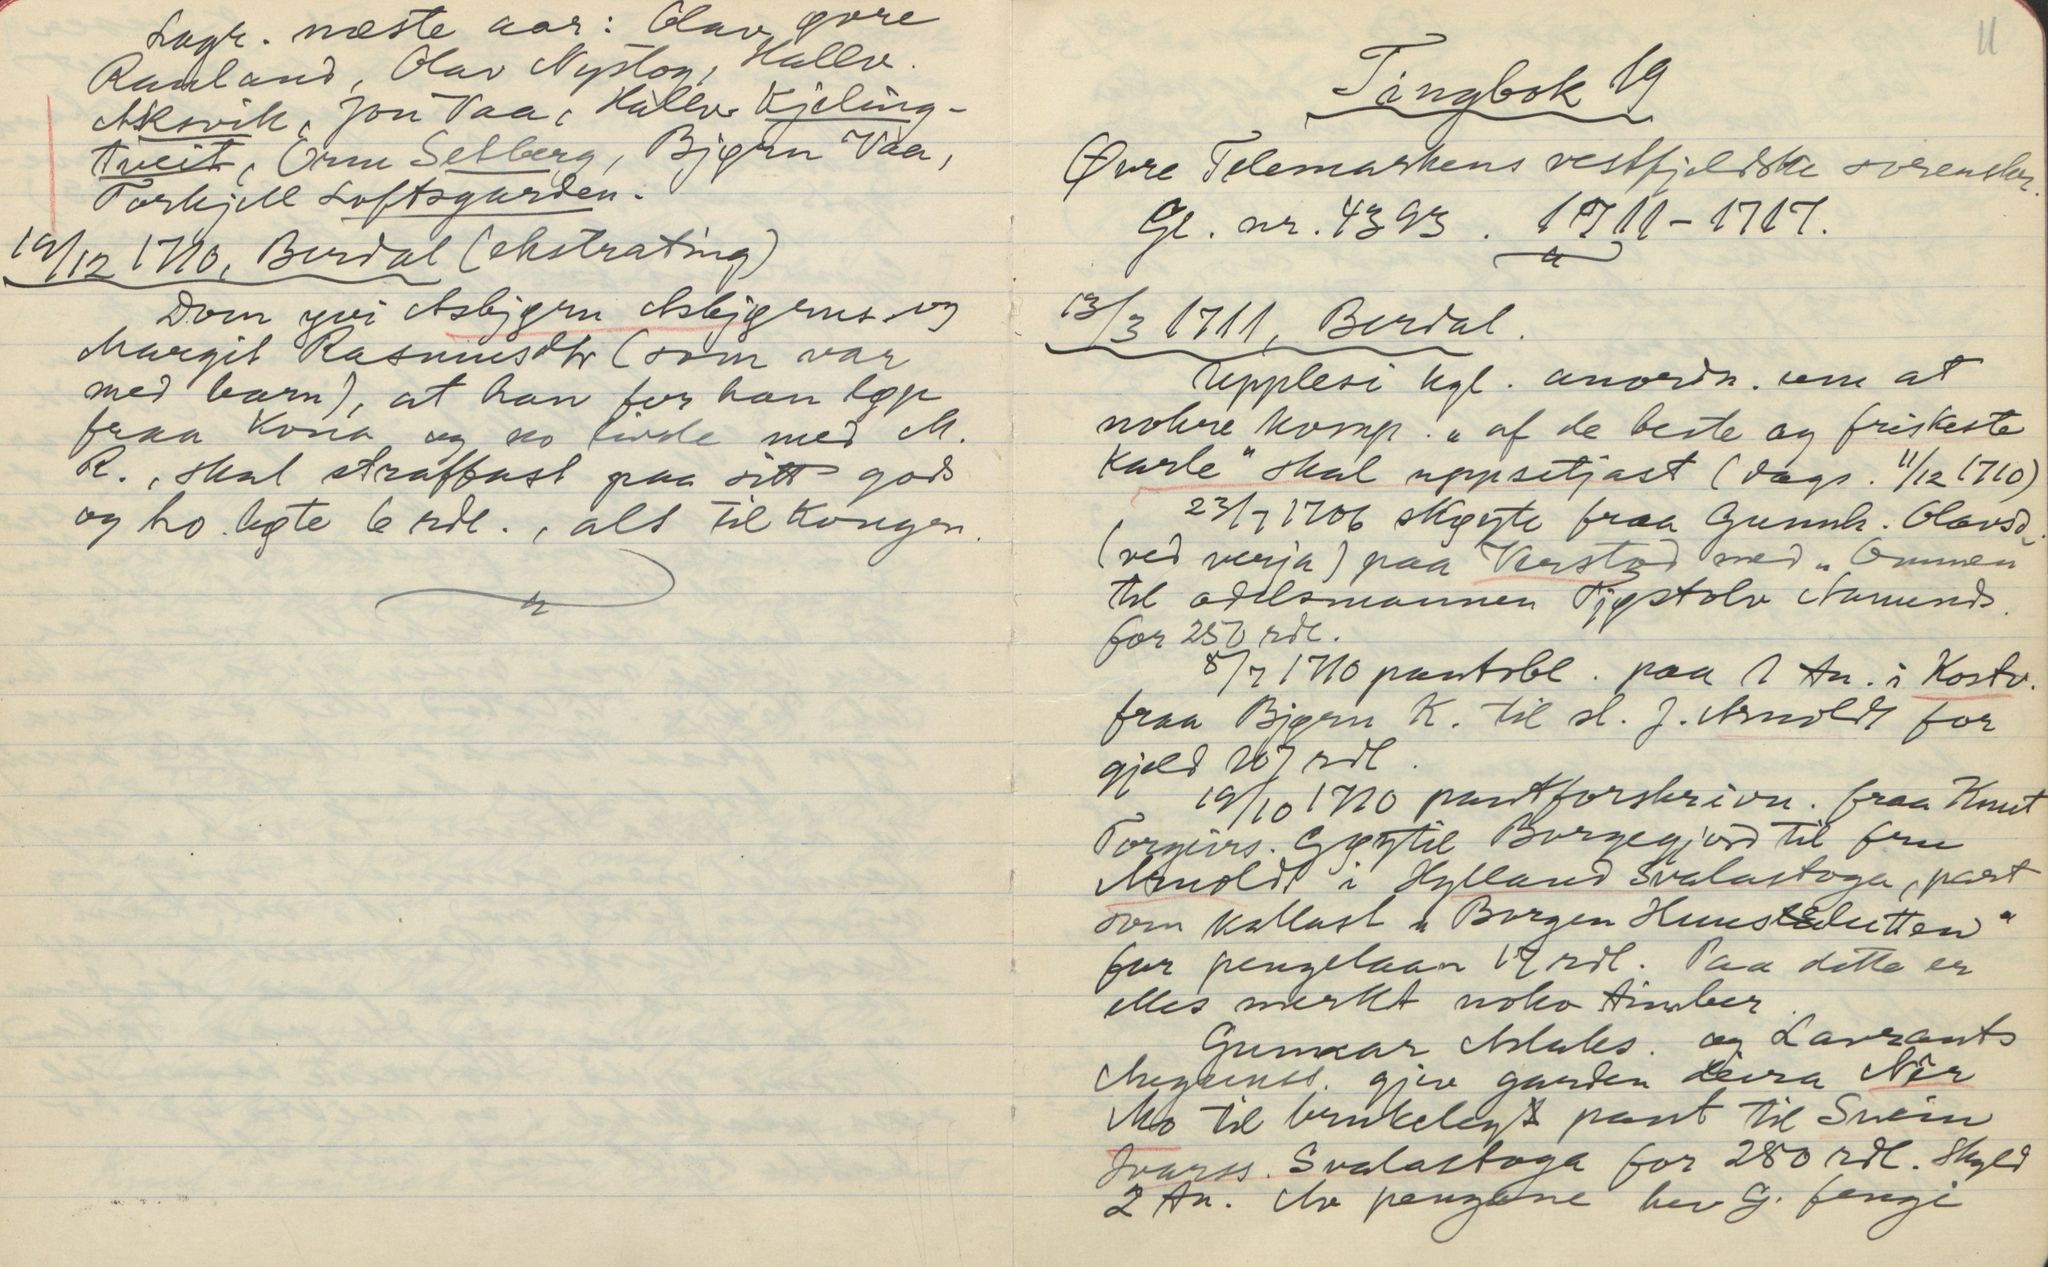 Lagr. næste aar: Olav øvre
Rauland, Olav Nystog, Hallv.
Aksvik, Jon Vaa, Hallv. Kjeling-
tveit, Orm Selberg, Bjørn Vaa,
Torkjell Loftsgarden.
19/12 1710, Berdal (ekstrating)
Dom yvi Asbjørn Asbjørns. og
Margit Rasmusdtr (som var
med barn), at han for han løp
fraa kona og no livde med M.
R., skal straffast paa sitt gods
og ho bøte 6 rdl., alt til Kongen.
11
Tingbok 19
Øvre Telemarkens vestfjeldske sorenskr.
Gl. nr. 4393. 1711-1717.
13/3 1711, Berdal.
Upplesi kgl. anordn. um at
nokre komp. "af de beste og friskeste
Karle" skal uppsetjast (dags. 11/12 1710)
23/7 1706 skøyte fraa Gunnh. Olavsd.
(ved verja) paa Verstad med "Ommen"
til odelsmannen Tjøstolv Aamunds.
for 250 rdl.
8/7 1710 pantobl. paa 1 tn. i Kostv.
fraa Bjørn K. til sl. J. Arnoldt for
gjeld 207 rdl.
19/10 1710 pantforskrivn. fraa Knut
Torgeirs. Gøytil Borgegjord til fru
Arnoldt i Hylland Svalastoga, part
som kallast "Borgen Huuslutten"
for pengelaan 17 rdl. Paa dette er
elles merkt noko timber.
Gunnar Aslaks. og Lavrants
Augunss. gjev garden deira Nir
Mo til brukeleg pant til Svein
Ivarss. Svalastoga for 280 rdl. Skyld
2 tn. Av pengane hev G. fengi